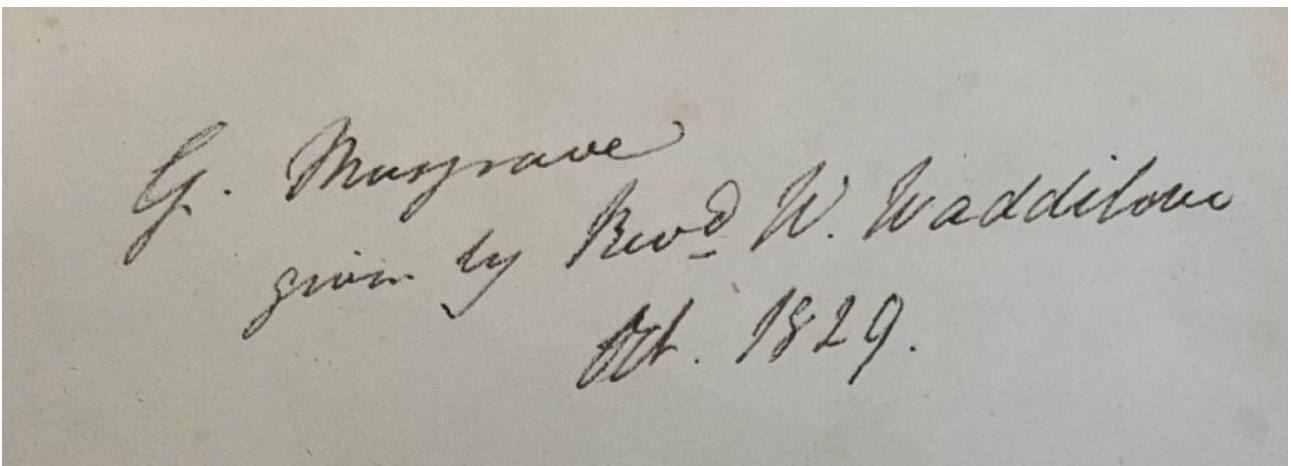 G. Musgrave
given by Revd. W. Waddilove
Oct. 1829.